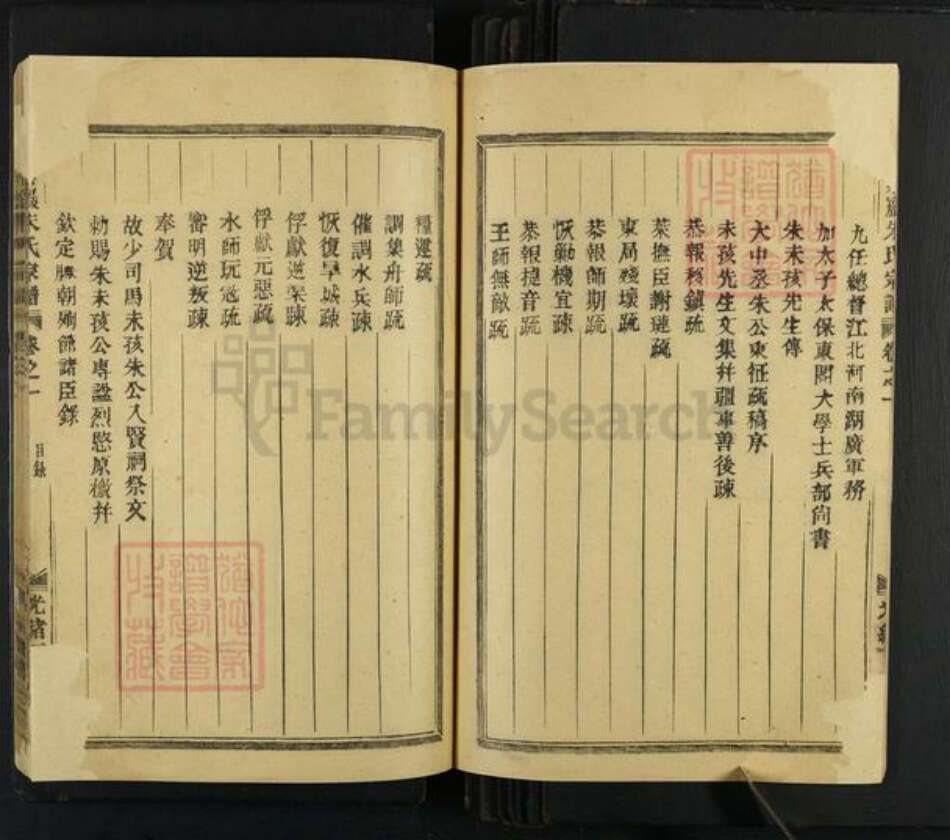 九任總督江北河南湖廣軍務
加太子太保東閣大學士兵部尙書
朱未孩先生傳
大中丞朱公東征疏稿序
未孩先生文集幷疆事善後疎
恭報移鎮疏
萊撫臣謝璉疏
東局殘壞疏
恭報師期疏
恢勦機宜疎
恭報㨗音疏
王師無敵疏
糧運疏
調集舟師疏
催調水兵疎
恢復旱城疎
俘獻逆渠疎
俘獻元惡疏
水師玩寇疏
審明逆叛疎
奉賀
故少司馬未孩朱公入賢祠祭文
勅賜朱未孩公專諡烈愍原檄幷
欽定勝朝殉節諸臣錄
朱氏宗譜
卷之一
目錄
光緒
FamilySearch